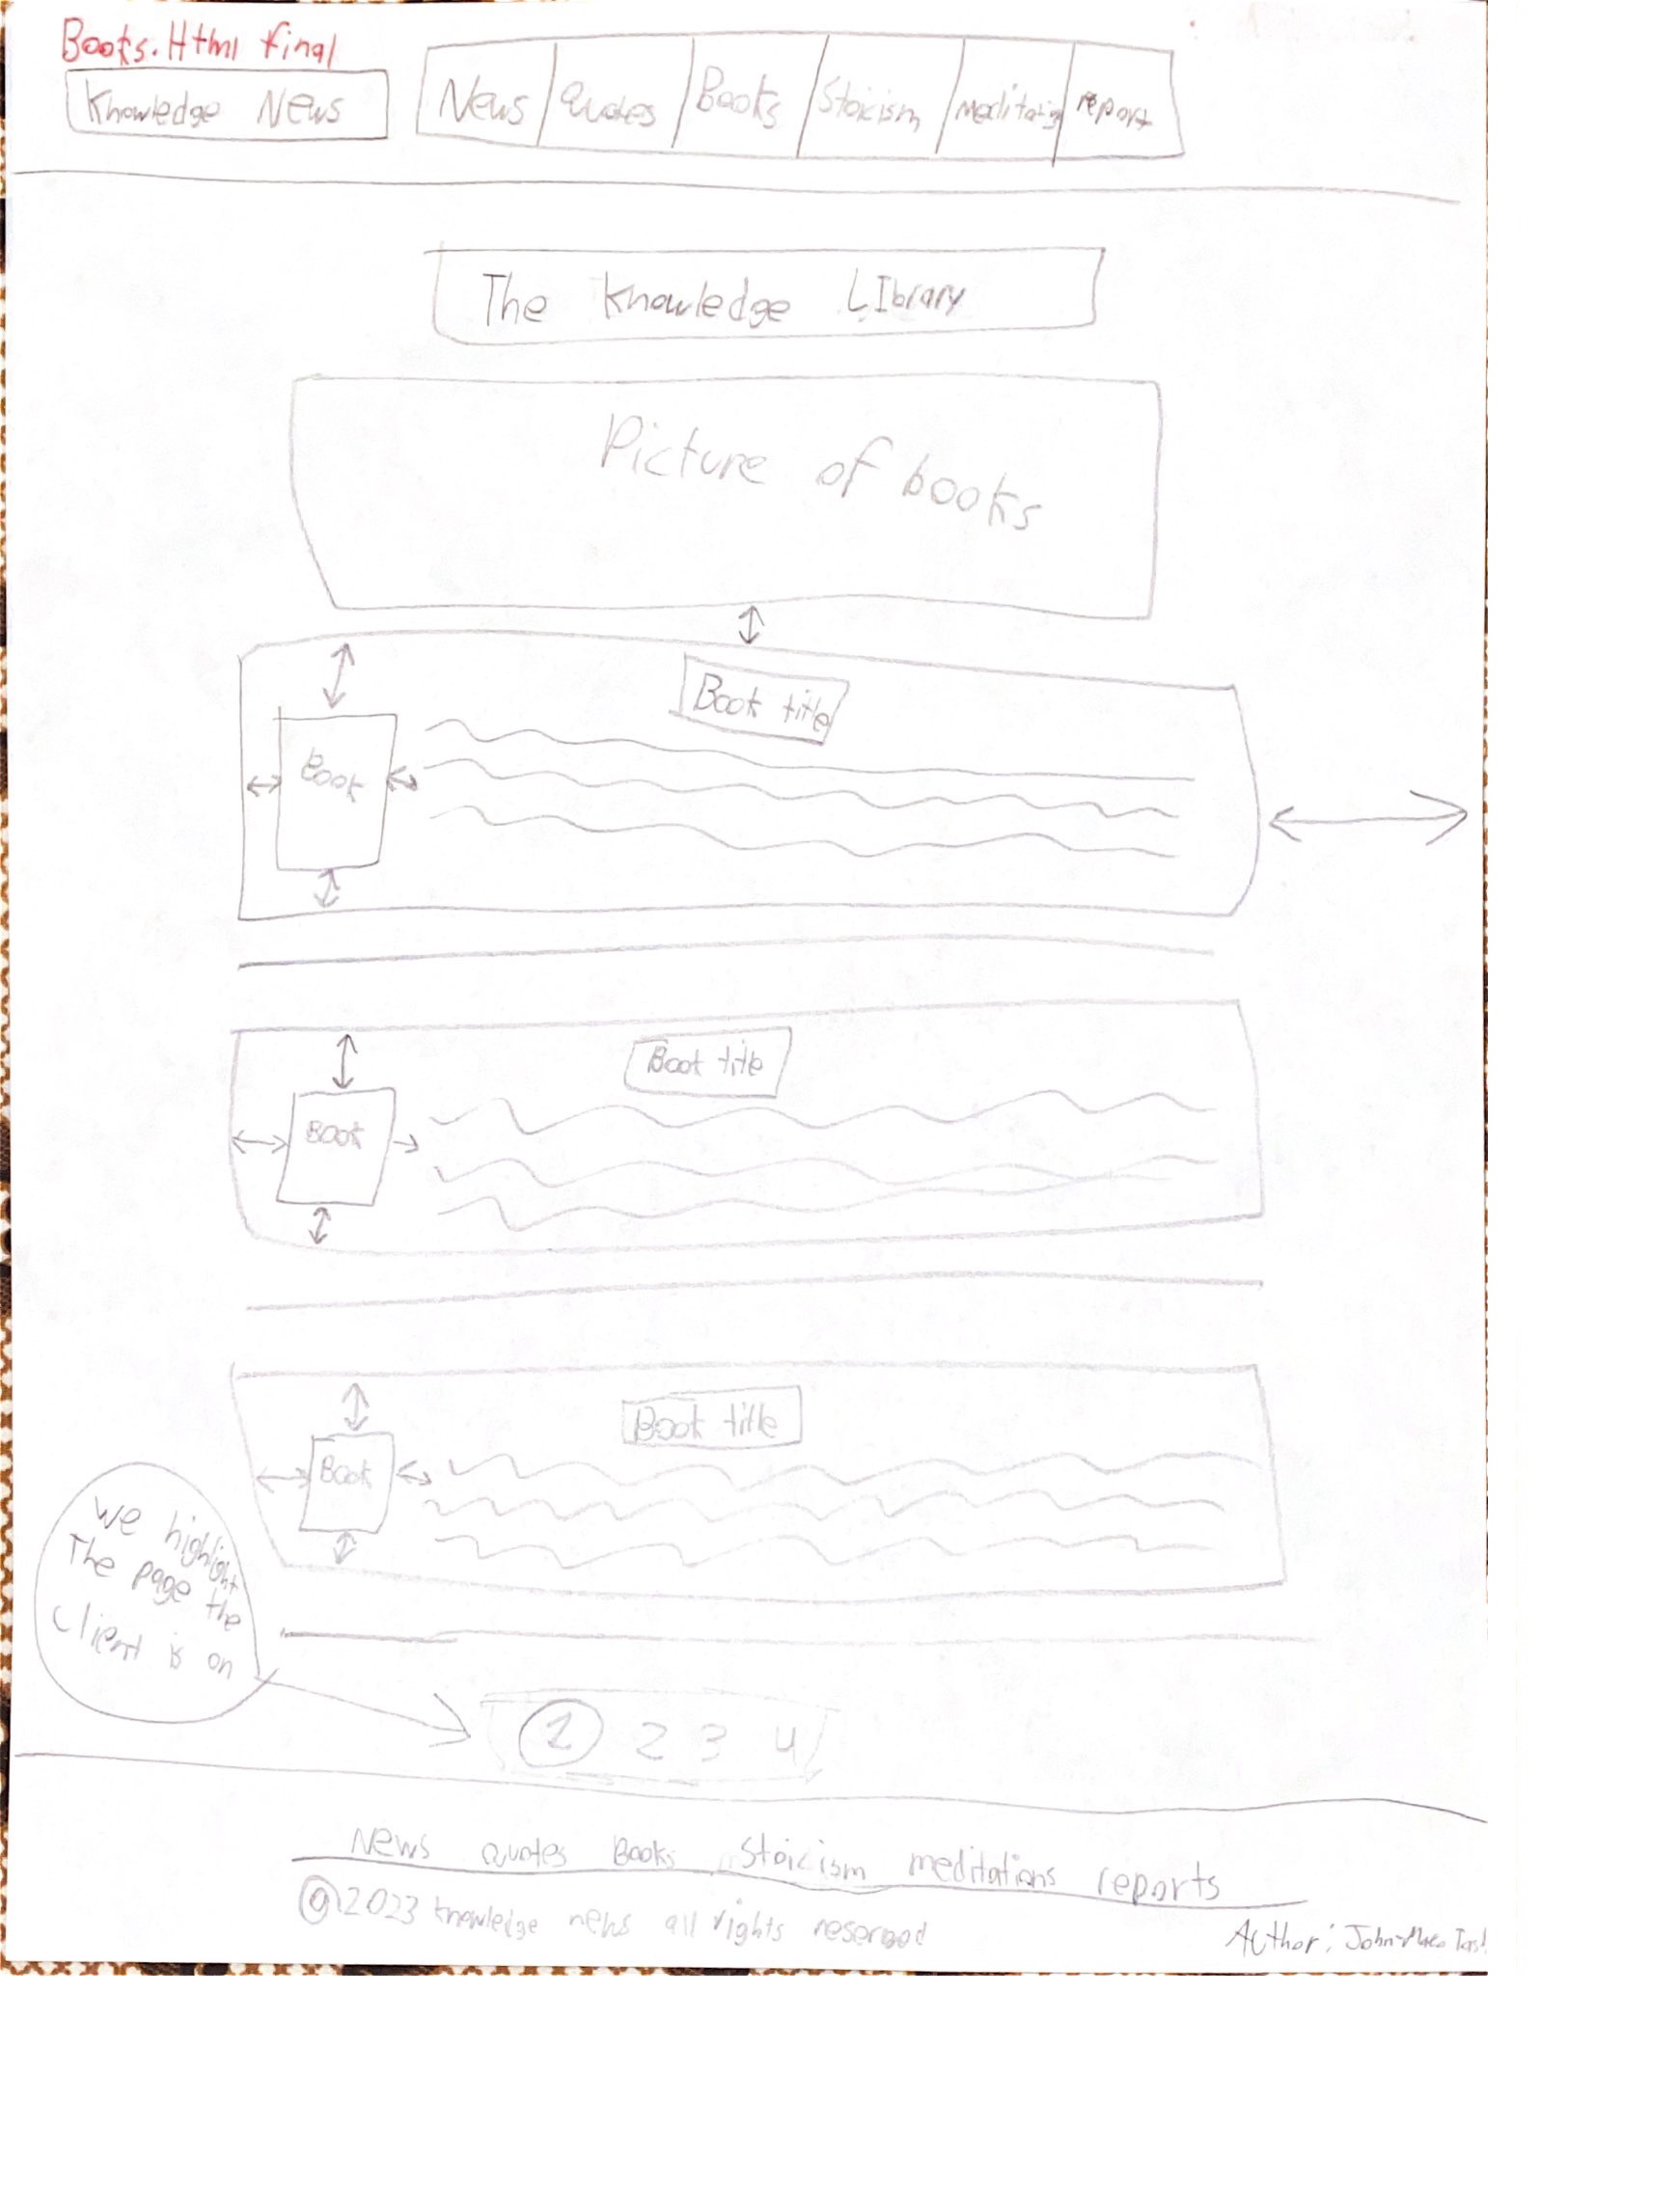 Books.Html final
Knowledge News
News Quotes Books Stoicism report
The Knowledge LIbrary
Picture of books
Book title
Book
Book title
Book
Book title
Book
We highlight
The page the
Client is on
1 2 3 4
News quotes Books Stoicism meditations reports
© 2023 knowledge news all rights reserved
Author: John-